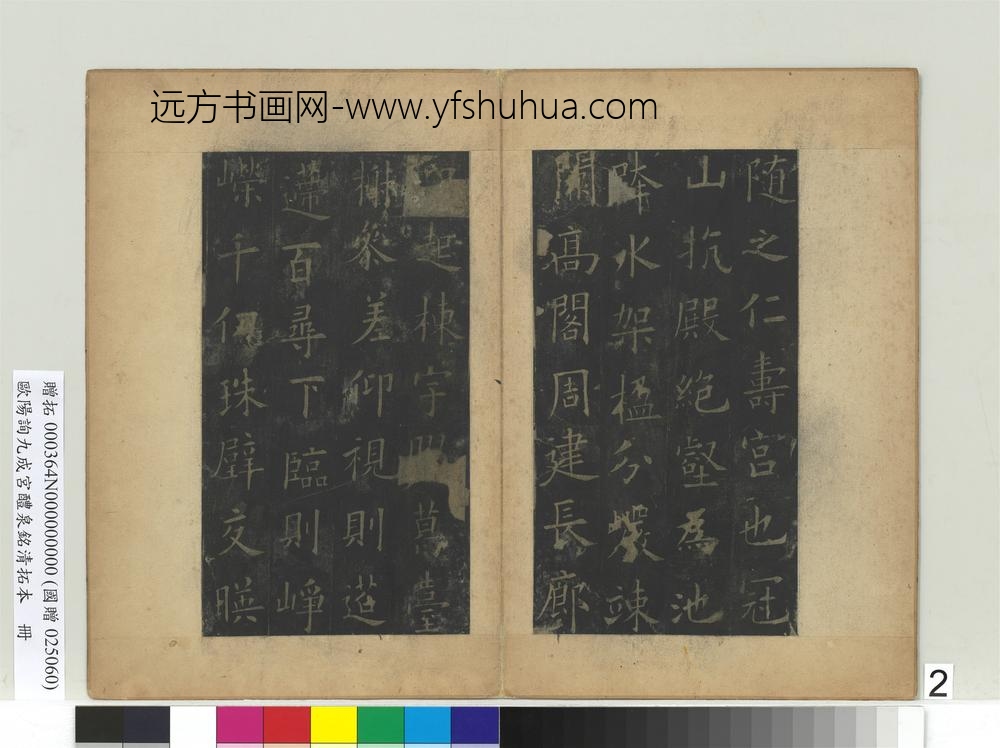 远方书画网-www.yfshuhua.com
随之仁壽宫也冠
山抗殿絕壑為池
跨水架楹分巖竦
闕高閣周建長廊
四起棟宇膠葛臺
榭參差仰視則迢
遰百尋下臨則崢
嶸千仞珠璧交暎
贈拓 000364N000000000 (國贈 025060)
歐陽詢九成宮醴泉銘清拓本 冊
2